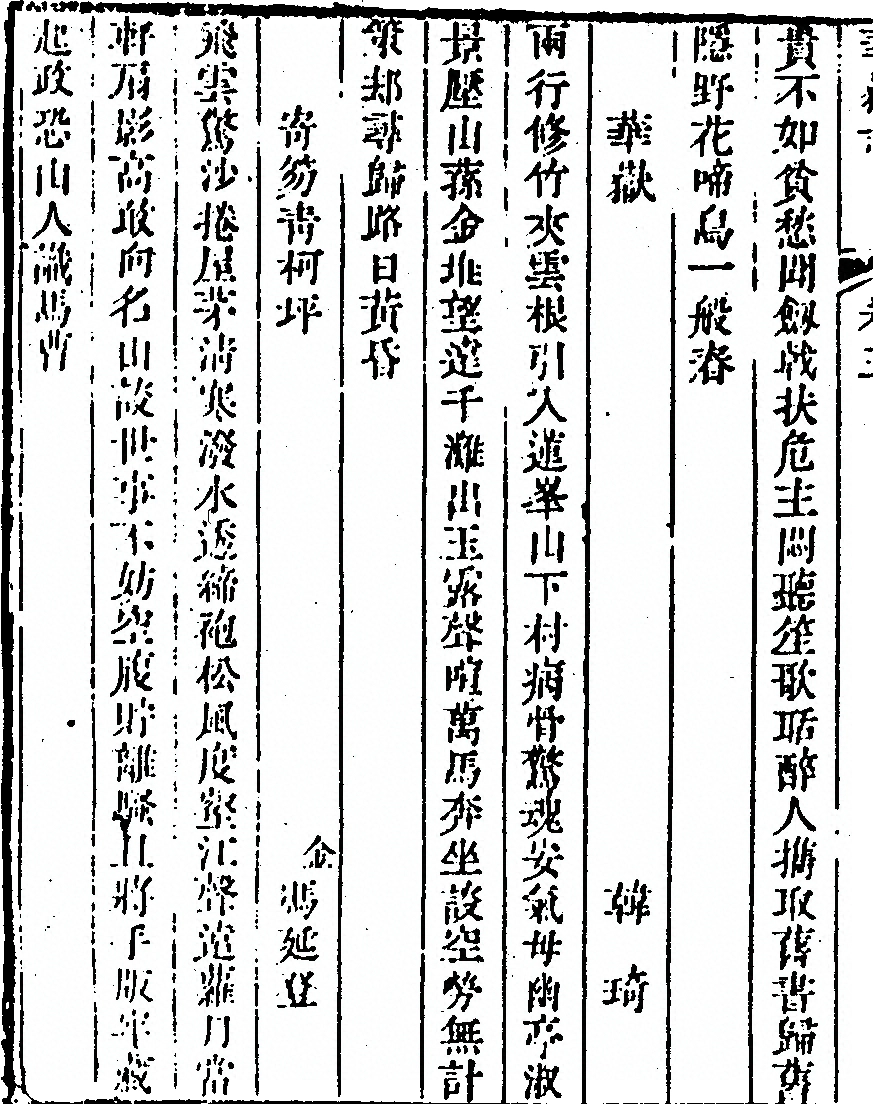 貴不如貧愁聞劔戟扶危主悶聽笙歌聒醉人攜取舊書歸舊
隱野花啼鳥一般春
華嶽 韓琦
兩行修竹夾雲根引入蓮峯山下村病骨驚魂安氣母幽亭淑
景壓山蓀金堆望遠千灘出玉露聲喧萬馬奔坐設空勞無計
策却尋歸路日黃昏
寄笏靑柯坪 金馮延登
飛雲驚沙捲屋茅清寒潑水透綈袍松風度壑江聲遠蘿月當
軒扇影高敢向名山談世事不妨空腹貯離騷且將手版牢藏
起政恐山人識馬曹